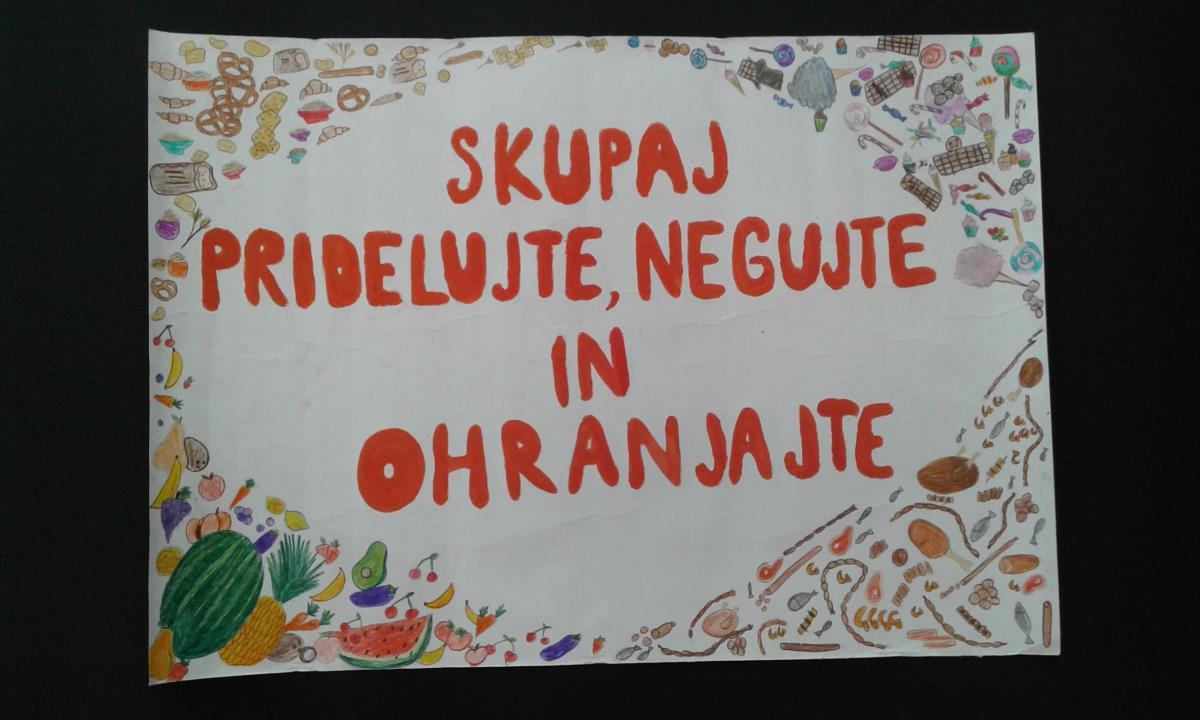 SKUPAJ
PRIDELUJTE, NEGUJTE
IN
OHRANJAJTE